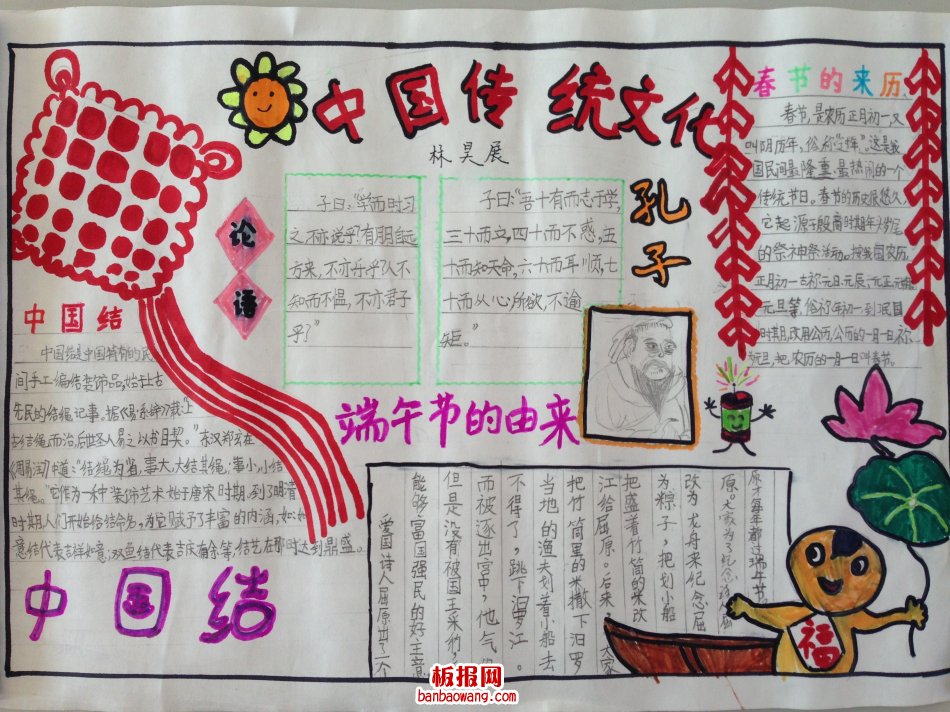 中国传统文化
林昊展
论语
子曰:“学而时习
之,不亦说乎?有朋自远
方来,不亦乐乎?人不
知而不愠,不亦君子
乎?”
子曰:“吾十有而志于学,
三十而立,四十而不惑,五
十而知天命,六十而耳顺,七
十而从心所欲,不逾
矩。
孔子
春节的来历
春节,是农历正月初一又
叫阴历年,俗称“过年”。这是我
国民间最隆重、最热闹的一个
传统节日。春节的历史很悠久,
它起源于殷商时期年头岁尾
的祭神祭活动。按我国农历,
正月初一古称元日、元辰、元正、元
元旦等,俗称年初一,到民国
时期,改用公历公历的一月一日称
为元旦,把农历的一月一日叫春节。
中国结
中国结是中国特有的民
间手工编结装饰品,始于上古
先民的结绳记事。据《易·系辞》载“上
古结绳而治,后世圣人易之以书目契。”东汉郑玄在
《周易注》中道:“结绳为,事大,大结其绳;事小,小结
其绳。”它作为一种装饰艺术始于唐宋时期。到了明清
时期,人们开始给结命名,为它赋予了丰富的内涵,如:如
意结代表吉祥如意;双鱼结代表吉庆有余等,结艺在那时达到鼎盛。
中国结
端午节的由来
爱国诗人屈原出了个
能够富国强民的好主意
但是没有被国王采
而被逐出宫中,他气
不得了,跳下汨罗江。
当地的渔夫划着小船去
把竹筒里的米撒下汨罗
江给屈原。后来,大家
把盛着竹筒的米改
为粽子,把划小船
改为龙舟来纪念屈
原。大家为了纪念
每年都过端午节
福
板报网
banbaowang.com